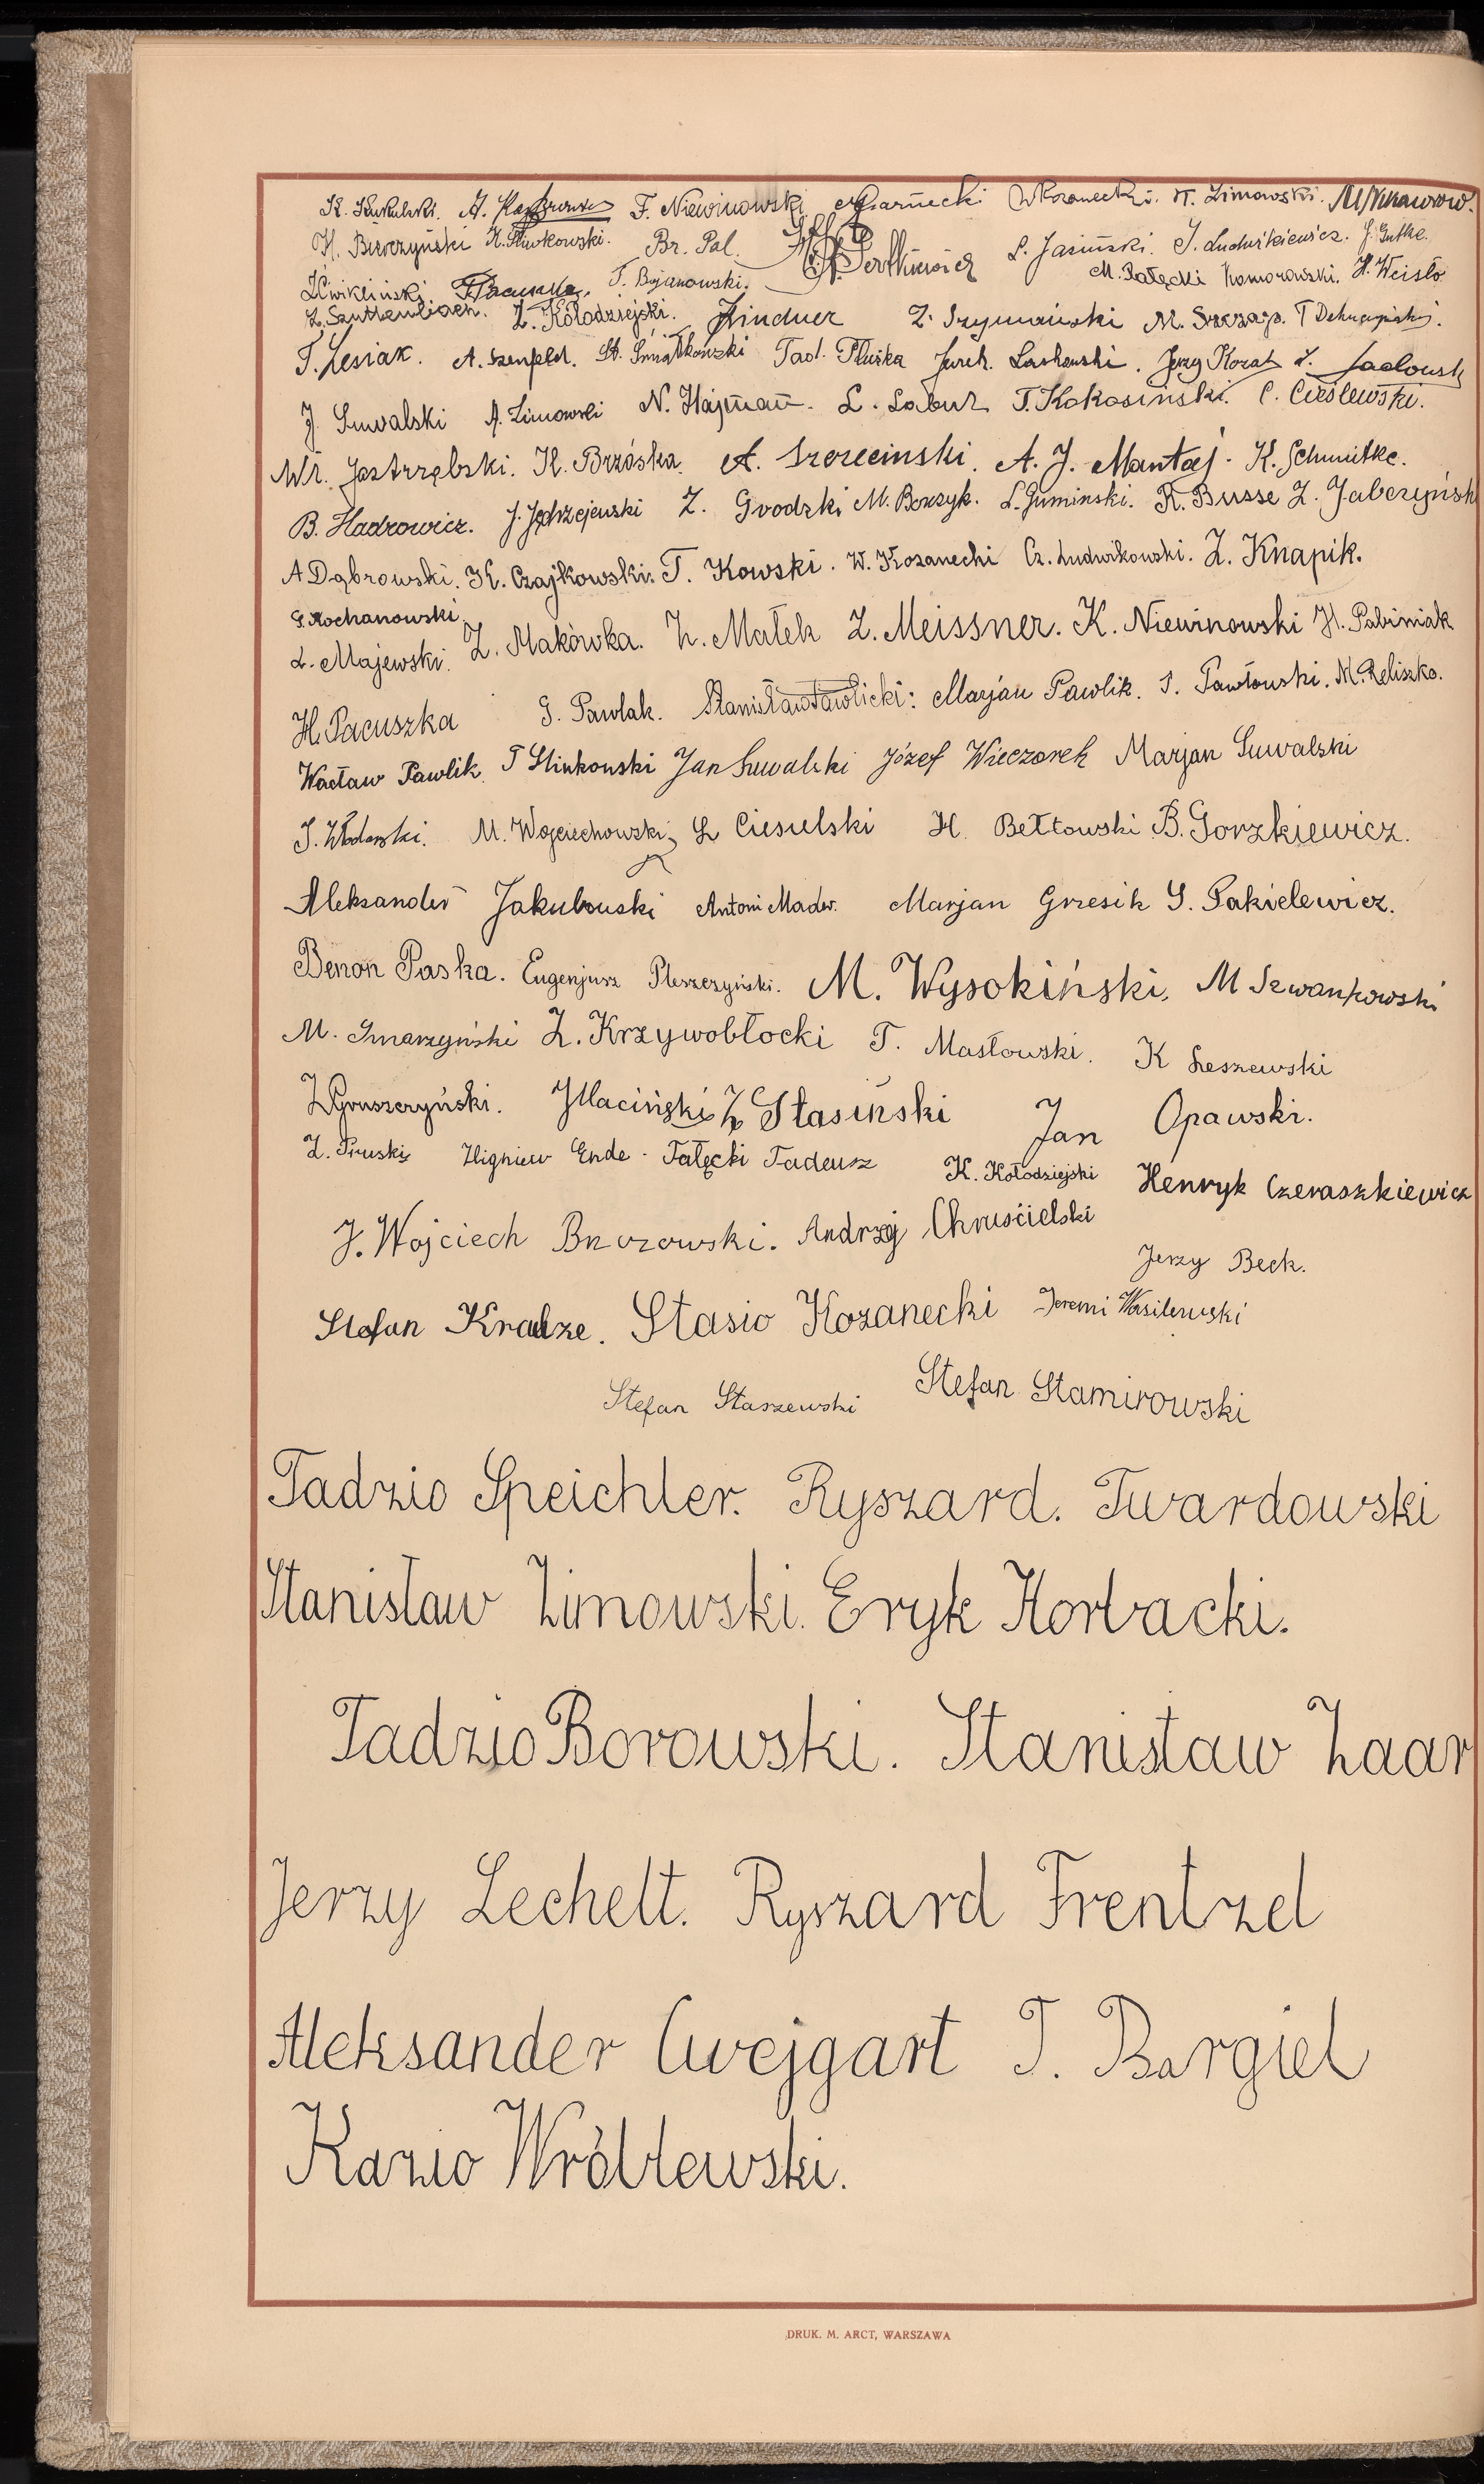 K. Kukulski. F. Niewinowski Czarnecki W. Kozanecki. H. Zimowski.
H. Bierczyński K. Śliwkowski. Br. Pal. L. Jasiński. J. Ludwikiewicz. J. Gutke.
Ćwikliński T. Bojanowski. M. Pałęcki Komorowski. H. Weisło
Z. Kołodziejski. Lindner Z. Szymański M.
T. Lesiak. A. Szenfeld. St. Śmiałkowski Tad. Pluska Jurek. Laskowski. Jerzy Kozak Z. Sadowsk
J. Suwalski A. Zimowski N. Hajman. L. Labuz T. Kokosiński. C. Cieślewski.
Wł. Jastrzębski. H. Brzóska. A. Szczeciński. A. J. Mantaj. K. Schmitke.
B. Hadrowicz. J. Jędrzejewski Z. Gvodzki M. Borzyk. L. Guminski. R. Busse Z. Jabczyńsk
A Dąbrowski. K. Czajkowski. T. Kowski. W. Kozanecki Cz. Ludwikowski. Z. Knapik.
S. Kochanowski
L. Majewski. Z. Makówka. Z. Małek Z. Meissner. K. Niewinowski H. Pabiniak
H. Pacuszka S. Pawlak. Stanisław Pawlicki: Marjan Pawlik. S. Pawłowski. M. Reliszko.
Wacław Pawlik. T Slinkowski Jan Suwalski Józef Wieczorek Marjan Suwalski
J. Włodarski. M. Wojciechowski L Ciesulski H. Bełtowski B. Gorzkiewicz.
Aleksander Jakubowski Antoni Mader. Marjan Grzesik S. Pakielewicz.
Benon Paska. Eugenjusz Pleszczyński. M. Wysokiński, M Szwankowski
M. Smarzyński Z. Krzywobłocki T. Masłowski. K Leszewski
Z Gruszczyński. J Maciński Z Stasiński Jan Opawski.
Z. Pruski Zbigniew Ende. Fałęcki Tadeusz K. Kołodziejski Henryk Czeraszkiewicz
J. Wojciech Brzozowski. Andrzej Chruścielski
Jerzy Beck.
Stefan Krauze. Stasio Kozanecki Jeremi Wasilewski
Stefan Staszewski Stefan Stamirowski
Tadzio Speichler. Ryszard. Twardowski
Stanisław Zimowski. Eryk Horbacki.
Tadzio Borowski. Stanisław Zaar
Jerzy Lechelt. Ryszard Frentzel
Aleksander Cwejgart T. Bargiel
Kazio Wróblewski.
DRUK. M. ARCT, WARSZAWA